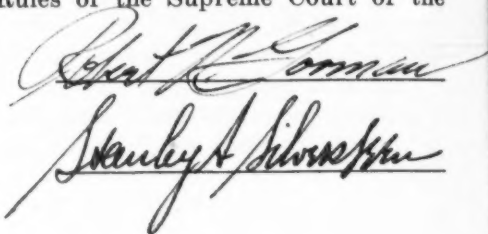 Rules of the Supreme Court of the
Robert N. Gorman
Stanley A Silversteen